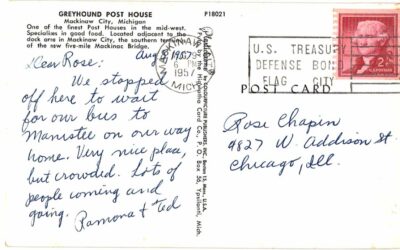 GREYHOUND POST HOUSE
Mackinaw City, Michigan
One of the finest Post Houses in the mid-west.
Specializes in good food. Located adjacent to the
dock area in Mackinaw City, the southern terminus
of the new five-mile Mackinac Bridge.
P18021
Aug 1957
Dear Rose:
We stopped
off here to wait
for our bus to
Manistee on our way
home. Very nice place,
but crowded. Lots of
people coming and
going. Ramona & Ted
MACKINAW
6
1957
MICH
U.S. TREASURY
DEFENSE BON
FLAG CITY
2¢
POST CARD
Rose Chapin
9827 W. Addison St.
Chicago, Ill.
by the Hiawatha Card Co., P.O. Box 56, Ypsilanti, Mich.